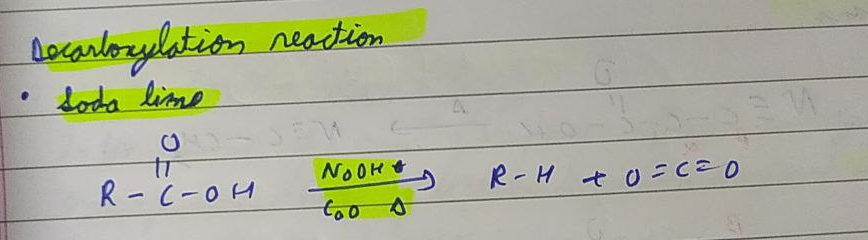 Decarboxylation reaction
• Soda lime
O
||
R - C - OH NaOH + CaO Δ → R - H + O = C = O